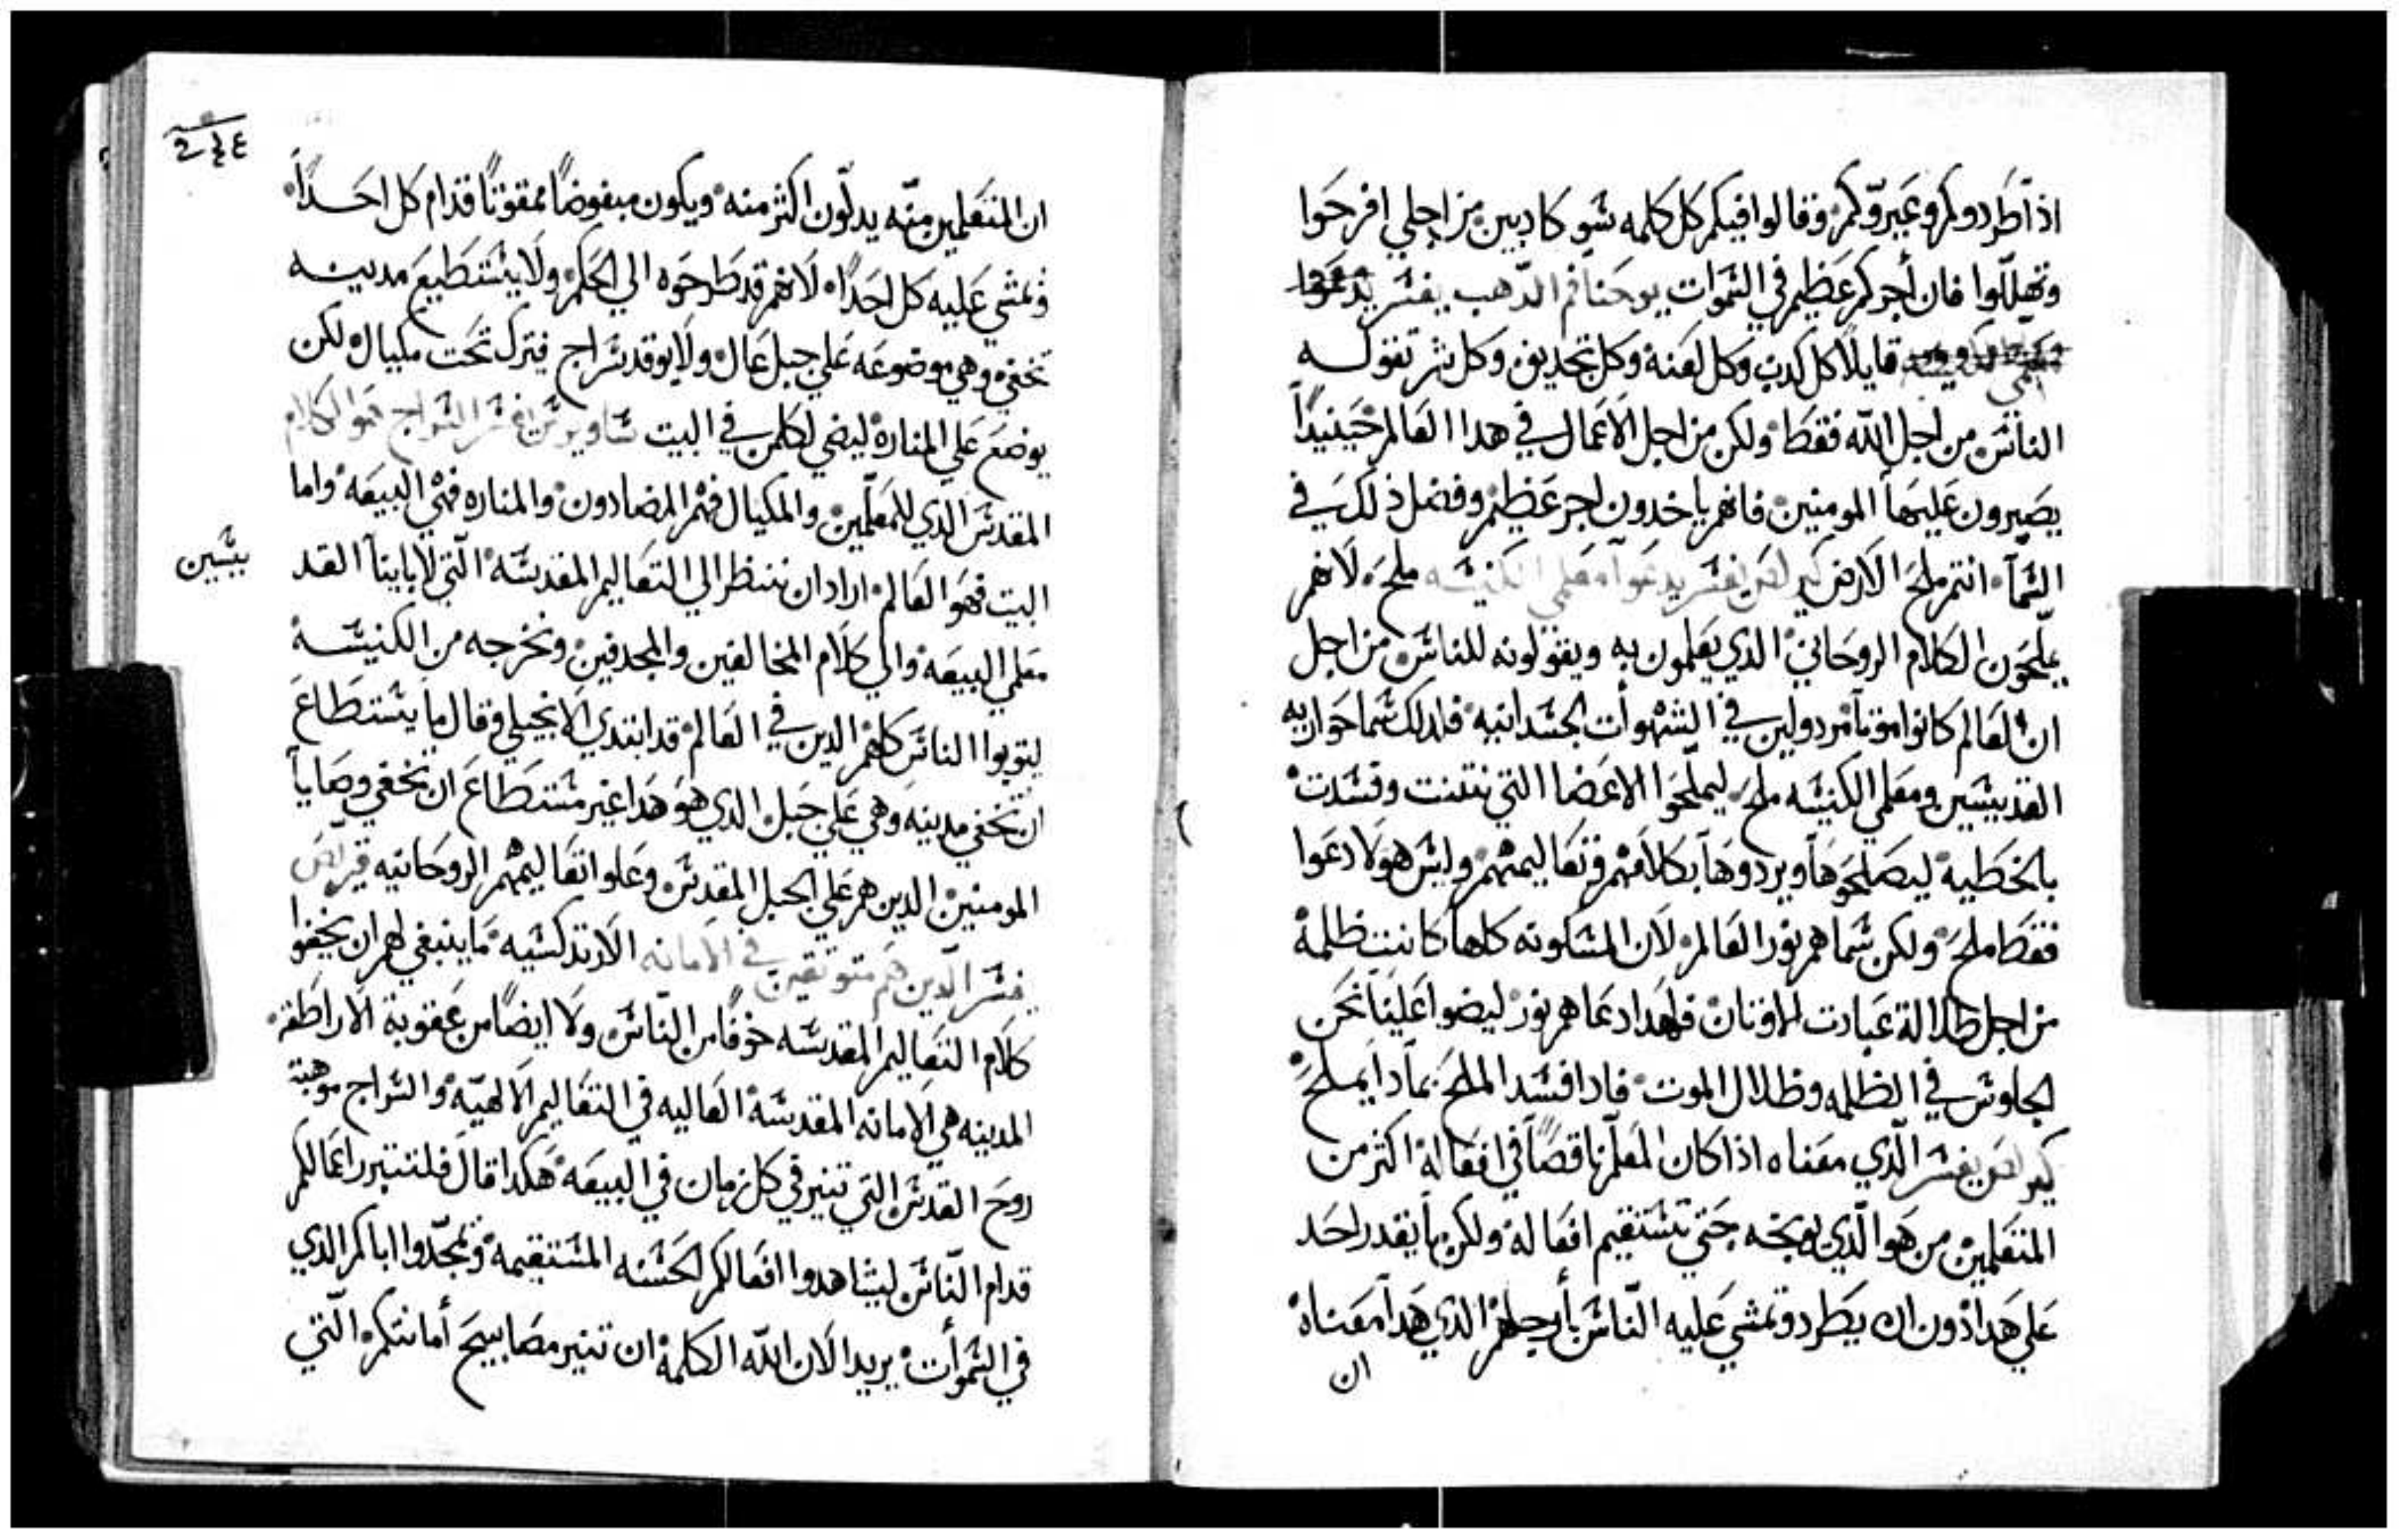 اذا طردوكم وعيروّكم وقالوا فيكم كل كلمه شو كاديين من اجلي افرحوا
وتهللّوا فان أجركم عظيم في الشموات يوحنا فم الدّهب يفشر
قايلاً كل كدب وكل لعنة وكل تجديف وكل شر تقوله
الناش من اجل اللّه فقط ولكن من اجل الاعمال في هدا العالم حينيداً
يصيرون عليها المومنين فانهم ياخدون اجر عظيم وفضل ذلك في
الشمآ انتم ملح الارض كيرلص يفشر يدعوا معلمي الكنيشه ملح لانهم
يملّحون الكلام الروحاني الدي يعلمون به ويقولونه للناش من اجل
ان العالم كانوا موتاً مردولين في الشهوأت الجشدانيه فلدلك شما حواريه
القديشين ومعلمي الكنيشه ملح ليملّحوا الاعضا التي نتنت وفشدت
بالخطية ليصلحوها ويردوهآ بكلامهم وتعاليمهم وليش هولا دعوا
فقط ملح ولكن شما هم نور العالم لان المشكونه كلها كانت ظلمة
من اجل ظلالة عبادت الاوتان فلهدا دعا هم نور ليضوا علينا نحن
الجلوش في الظلمه وظلال الموت فادا فشد الملح بمآدا يملح
كيرلص يفشر الّدي معناه اذا كان المعلّم ناقصاً في افعالة اكثر من
المتعلمين من هو الّدي يوبخه حتي تشتقيم افعالة ولكن مآ يقدر احد
علي هدا دون ان يطرد وتمشي عليه النّاش بأرجلهم الدي هدا معناه
ان
ان المتعلمين منّه يدلّون اكثر منه ويكون مبغوضاً ممقوتاً قدام كل احداً
وتمشي عليه كل احداً لانهم قد طرحوه الي الحكم ولا يشتطيع مدينه
تختفي وهي موضوعه علي جبل عال ولا يوقد شراج فيترك تحت مكيال لكن
يوضع علي المنارة ليضي لكلمن في البيت شاويرش يفشر الشراج هو الكلام
المقدش الّدي للمعلّمين والمكيال فهم المضادون والمناره فهي البيعه واما
البيت فهو العالم اراد ان ننظر الي التعاليم المقدشه الّتي لابايناً القد
يشين
معلمي البيعه والي كلام المخالفين والمجدفين ونخرجه من الكنيشة
ليتوبوا الناش كلهم الدين في العالم قد ابتدي الانجيلي وقال ما يشتطاع
ان تختفي مدينه وهي علي جبل الدي هو هدا غير مشتطاع ان تختفي وصاياً
المومنين الدين هم علي الجبل المقدش وعلوا تعاليمهم الروحانيه كيرلص
يفشر الّدين هم متوتقين في الامانه الارتدكشيه ما ينبغي لهم ان يخفوا
كلام التعاليم المقدشه خوفاً من النّاش ولا ايضاً من عقوبة الاراطقه
المدينه هي الامانه المقدشة العاليه في التعاليم الالهيّه والشراج موهبة
روح القدش التي تنير في كل زمان في البيعه هكدا قال فلتنير اعمالكم
قدام النّاش ليشاهدوا افعالكم الحشنه المشتقيمه ويمجّدوا اباكم الدي
في الشموأت يريد الان اللّه الكلمة ان تنير مصابيح أمانتكم الّتي